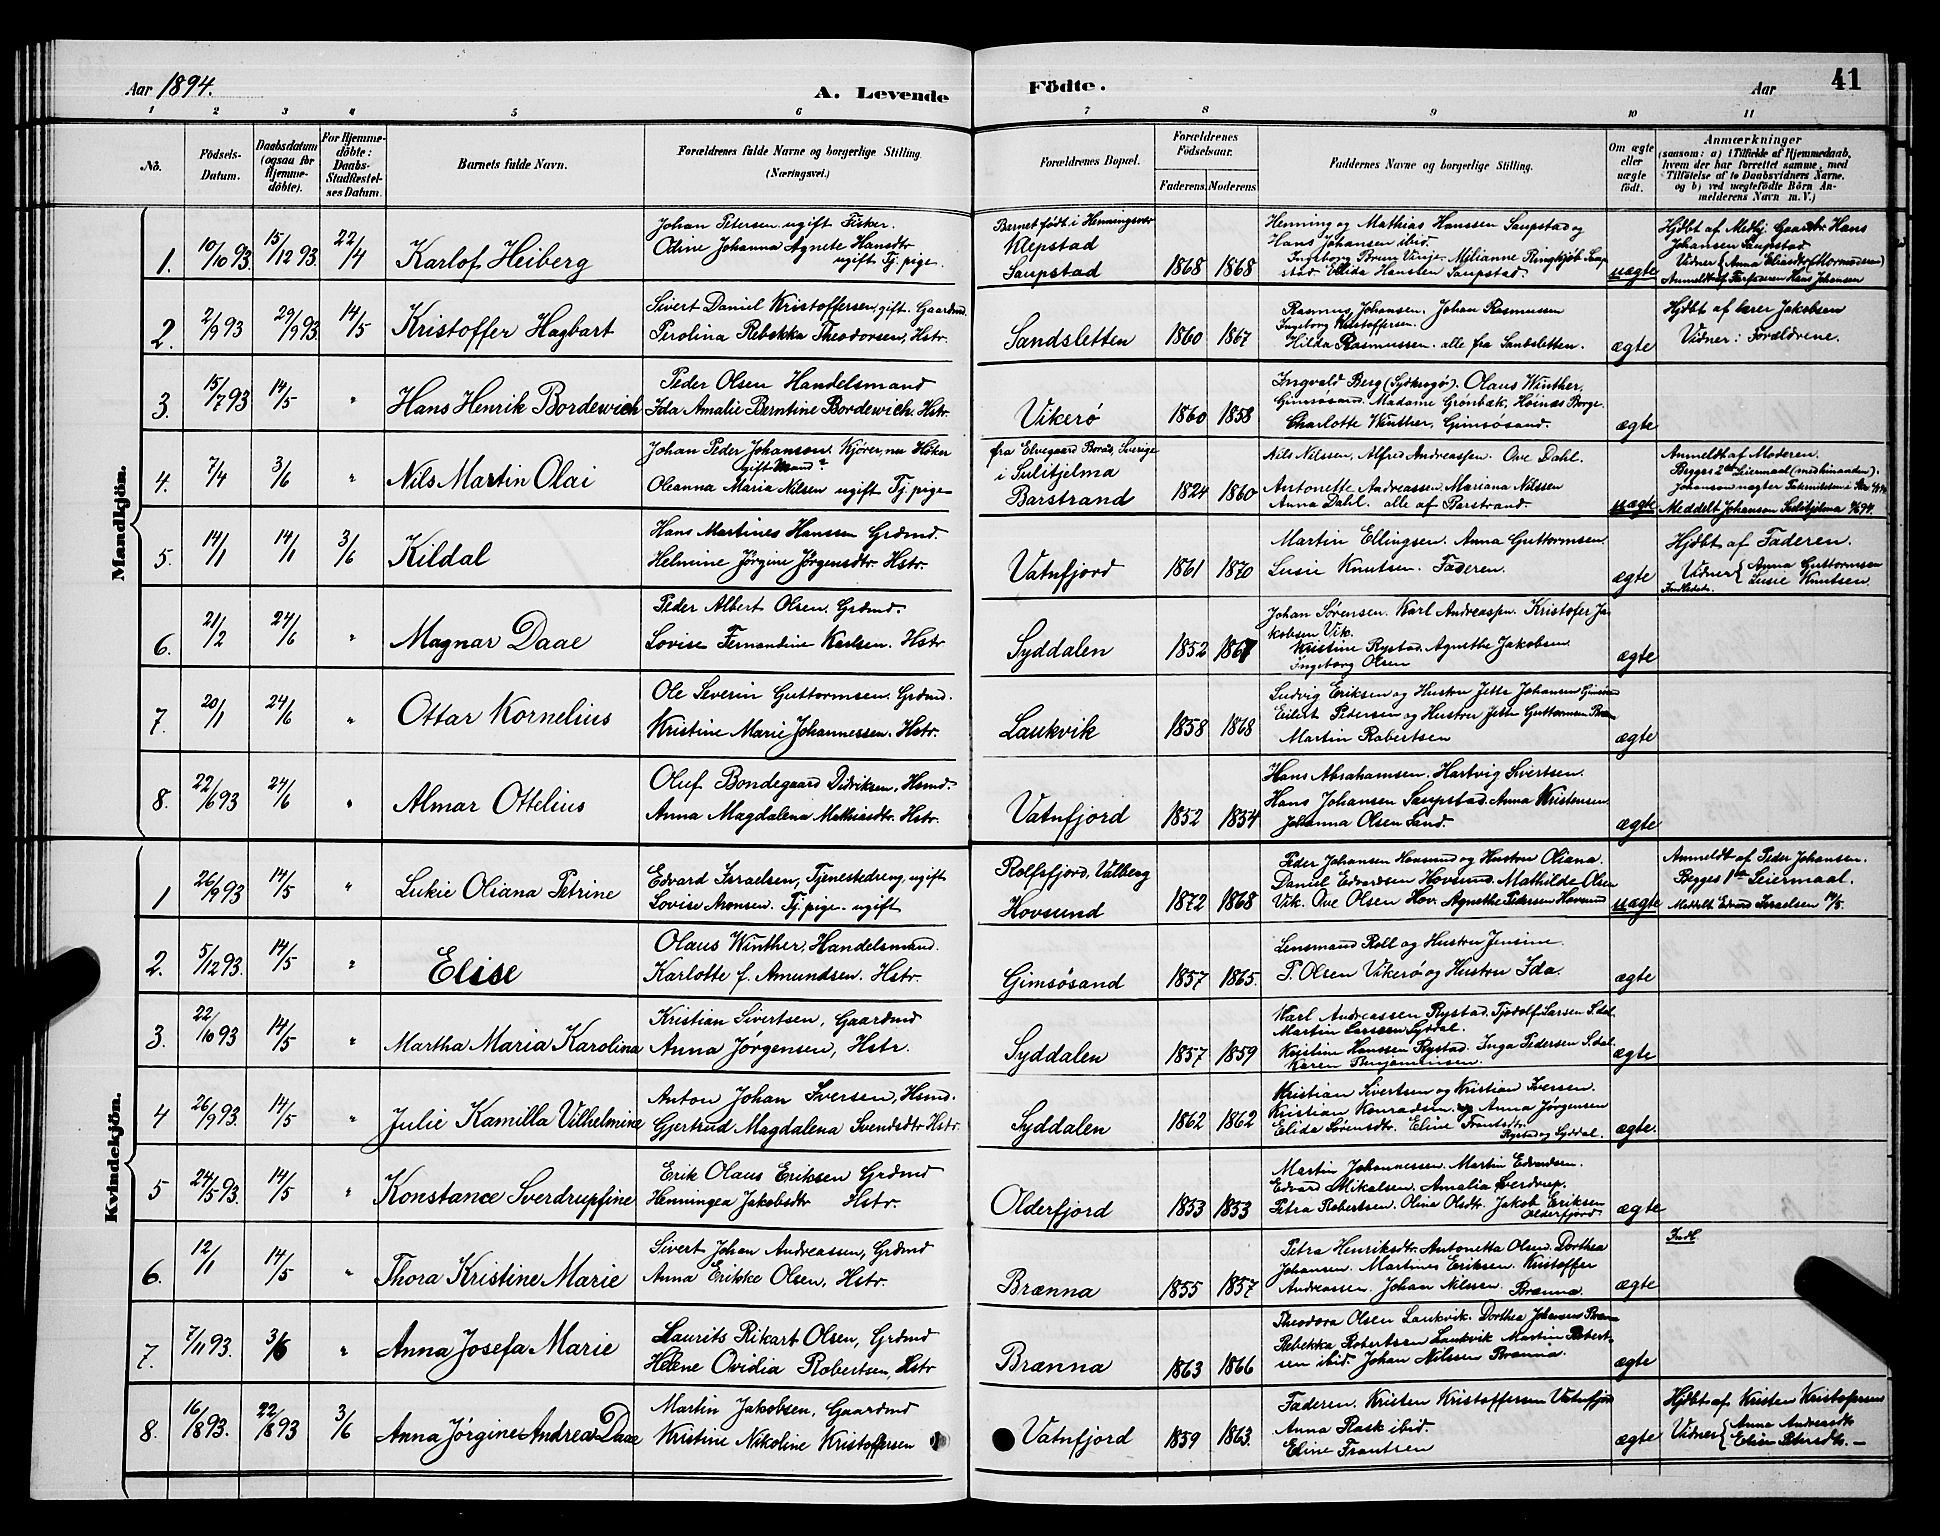 Aar 1894.
A. Levende Födte.
Aar
41
1 2 3 4 5 6 7 8 9 10 11
No.
Födsels-Datum.
Daabsdatum (ogsaa for Hjemmedöbte).
For Hjemmedöbte: Daabs-Stadfæstelses Datum.
Barnets fulde Navn.
Forældrenes fulde Navne og borgerlige Stilling. (Næringsvei.)
Forældrenes Bopæl.
Forældrenes Födselsaar.
Faderens. Moderens.
Faddernes Navne og borgerlige Stilling.
Om ægte eller uægte födt.
Anmærkninger
(saasom: a) i Tilfælde af Hjemmedaab, hvem der har forrettet samme, med Tilföielse af to Daabsvidners Navne, og b) ved uægtefödte Börn Anmelderens Navn m. V.)
Mandkjön.
1. 10/10 93 15/12 93. 22/4 Karlof Heiberg
Johan Petersen ugift Fisker.
Odine Johanna Agnete Hansdtr ugift Tj. pige.
Barnet født i Henningsvær
Klepstad
Saupstad 1868 1868
Henning og Mathias Hanssen Saupstad og
Hans Johansen ibid.
Ingeborg Brun Vinje. Milianne Ringkjøb Saupstad Ellida Hansten Saupstad.
uægte
Hjdbt af Gaardbr Hans
Johansen Saupstad
Vidner { Anna Eliasdtr (Mormoderen)
Anmeldt af Farfaren Hans Johansen
2. 2/9 93 29/9 93. 14/5 Kristoffer Hagbart
Sivert Daniel Kristoffersen, gift. Gaardmd.
Perolina Rebekka Theodorsen, Hstr.
Sandsletten 1860 1867
Rasmus Johansen. Johan Rasmussen
Ingeborg Kristoffersen.
Hilda Rasmussen. alle fra Sandsletten.
ægte
Hjdbt af lærer Jakobsen
Vidner: Forældrene.
3. 15/7 93 14/5 " Hans Henrik Bordewich
Peder Olsen Handelsmand
Ida Amalie Berntine Bordewich. Hstr.
Vikerø 1860 1858
Ingvald Berg (Sydkragø). Olaus Winther,
Gimsøsand. Madame Grønbæk, Høinæs Borge.
Charlotte Winther, Gimsøsand.
ægte
4. 7/4 3/6 " Nils Martin Olai
Johan Peder Johanson. Kjører, nu Höker
gift Mand?
Oleanna Maria Nilsen ugift Tj. pige
fra Elvegaard Borås, Sverige
i Sulitjelma
Barstrand 1824 1860
Nils Nilssen, Alfred Andreassen. Ove Dahl.
Antonette Andreassen. Mariana Nilssen
Anna Dahl. alle af Barstrand.
uægte
Anmeldt af Moderen.
Begges 2det Leiermaal
Meddelt Johanson Sulitjelma
5. 14/1 14/1 3/6 Kildal
Hans Martines Hanssen Grdmd.
Helmine Jørgine Jørgensdtr. Hstr.
Vatnfjord 1861 1870
Martin Ellingsen. Anna Guttormsen.
Susie Knutsen. Faderen.
ægte
Hjdbt af Faderen.
Vidner { Anna Guttormsen
Susie Knutsen.
6. 21/2 24/6 " Magnar Daae
Peder Albert Olsen. Grdmd.
Lovise Fernandine Karlsen. Hstr
Syddalen 1852 1867
Johan Sørensen. Karl Andreassen. Kristofer Jakobsen Vik.
Kristine Rystad. Agnethe Jakobsen
Ingeborg Olsen
ægte
7. 20/1 24/6 " Ottar Kornelius
Ole Severin Guttormsen. Grdmd.
Kristine Marie Johannessen. Hstr.
Laukvik 1858 1868
Ludvig Eriksen og Hustru Jette Johansen
Eilert Pedersen og Hustru Jette Guttormsen
Martin Robertsen
ægte
8. 22/6 93 24/6 " Almar Ottelius
Oluf Bondegaard Didriksen. Hsmd.
Anna Magdalena Mathiasdtr. Hstr.
Vatnfjord 1852 1854
Hans Abrahamsen. Hartvig Sivertsen.
Hans Johansen Saupstad. Anna Kristensen
Johanna Olsen Sand.
ægte
Kvindekjön.
1 26/9 93 14/5 " Lukie Oliana Petrine
Edvard Israelsen, Tjenestedreng, ugift
Lovise Aronsen. Tj. pige. ugift
Rolfsfjord, Valberg
Hovsund 1872 1868
Peder Johansen Hovsund og Hustru Oliana.
Daniel Edvardsen Hovsund. Mathilde Olsen
Vik. Ove Olsen Hov. Agnethe Petersen Hovsund
uægte
Anmeldt af Peder Johansen.
Begges 1ste Leiermaal.
Meddelt Edvard Israelsen
2. 5/12 93. 14/5 " Elise
Olaus Winther, Handelsmand.
Karlotte f. Amundsen. Hstr.
Gimsøsand 1857 1865.
Lensmand Roll og Hustru Jensine.
P. Olsen Vikerø og Hustru Ida.
ægte
3. 22/10 93 14/5 " Martha Maria Karolina
Kristian Sivertsen, Gaardmd
Anna Jørgensen, Hstr.
Syddalen 1857 1859
Karl Andreassen Rystad. Tjodolf Larsen S.dal.
Martin Larssen Syddal.
Kristine Hanssen Rystad. Inga Pedersen S.dal
Karen Benjaminsen.
ægte
4 26/9 93. 14/5 " Julie Kamilla Vilhelmine
Anton Johan Iversen, Hsmd.
Gjertrud Magdalena Svendsdtr Hstr.
Syddalen 1862 1862
Kristian Sivertsen og Kristian Iversen.
Kristian Konradsen. og Anna Jørgensen
Elida Sørensdtr. Eline Frantsdtr.
Rystad og Syddal.
ægte.
5 24/5 93. 14/5 " Konstance Sverdrupfine
Erik Olaus Eriksen Grdmd
Henningea Jakobsdtr Hstr.
Olderfjord 1853 1853
Martin Johannessen. Martin Edvardsen.
Edvard Mikalsen. Amalia Sverdrup.
Petra Robertsen. Olina Olsdtr. Jakob Eriksen
Olderfjord.
ægte
6. 12/1 14/5 " Thora Kristine Marie
Sivert Johan Andreassen, Grdmd
Anna Erikke Olsen, Hstr.
Brænna 1855 1857
Petra Henriksdtr. Antonetta Olsen. Dorthea
Johansen. Martines Eriksen. Kristoffer
Andreassen. Johan Nilssen. Brænna.
ægte
Indl.
7. 7/11 93. 3/6 " Anna Josefa Marie
Laurits Rikart Olsen, Grdmd
Helene Ovidia Robertsen, Hstr
Brænna 1863 1866
Theodora Olsen Laukvik. Dorthea Johansens
Rebekka Robertssen Laukvik Martin Robertsen ibid. Johan Nilssen Brænna.
ægte
8. 16/8 93. 22/8 93 3/6 Anna Jørgine Andrea Daae
Martin Jakobsen, Gaardmd
Kristine Nikoline Kristoffersen
Vatnfjord 1859 1863.
Faderen. Kristen Kristoffersen Vatnfjord
Anna Rask ibid.
Eline Frantsen
ægte
Hjdbt af Kristen Kristofersen
Vidner { Anna Andersdtr